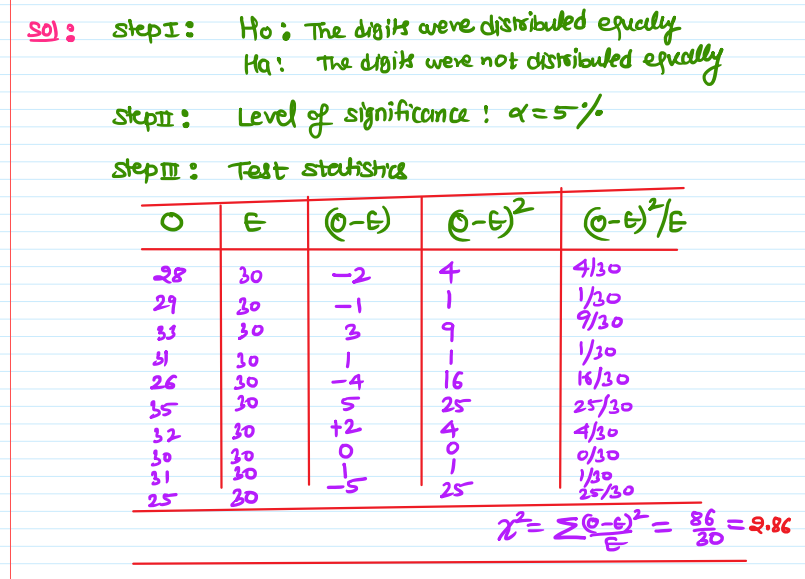 Sol: Step I: Ho: The digits were distributed equally
Ha: The digits were not distributed equally
Step II: Level of significance: α = 5%
Step III: Test statistics
O E (O-E) (O-E)² (O-E)²/E
28 30 -2 4 4/30
29 30 -1 1 1/30
33 30 3 9 9/30
31 30 1 1 1/30
26 30 -4 16 16/30
35 30 5 25 25/30
32 30 +2 4 4/30
30 30 0 0 0/30
31 30 1 1 1/30
25 30 -5 25 25/30
χ² = Σ(O-E)²/E = 86/30 = 2.86